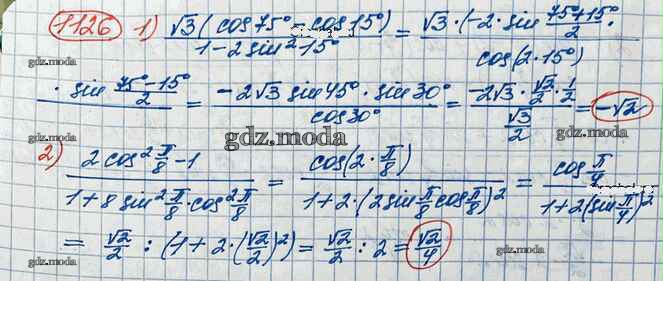 1126 1) √3(cos75° - cos15°) / 1-2sin²15° = √3·(-2·sin (75°+15°)/2 · / cos(2·15°)
· sin (75°-15°)/2 = -2√3 sin45°·sin30° / cos30° = -2√3·√2/2·1/2 / √3/2 = -√2
gdz.moda
2) 2cos²π/8 - 1 / 1+8sin²π/8·cos²π/8 = cos(2·π/8) / 1+2·(2sinπ/8cosπ/8)² = cosπ/4 / 1+2(sinπ/4)²
gdz.moda
= √2/2 : (1+2·(√2/2)²) = √2/2 : 2 = √2/4
gdz.moda gdz.moda gdz.moda